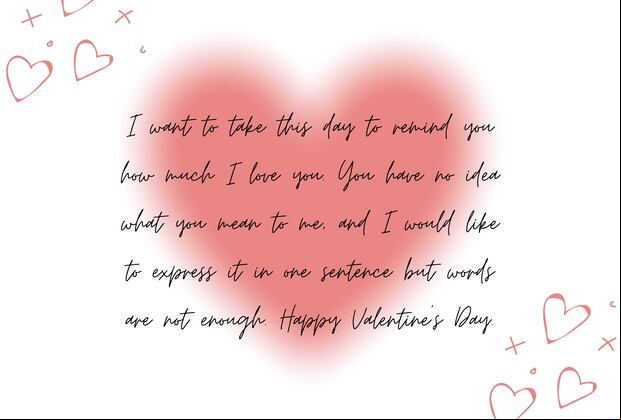 I want to take this day to remind you
how much I love you. You have no idea
what you mean to me, and I would like
to express it in one sentence but words
are not enough. Happy Valentine's Day.